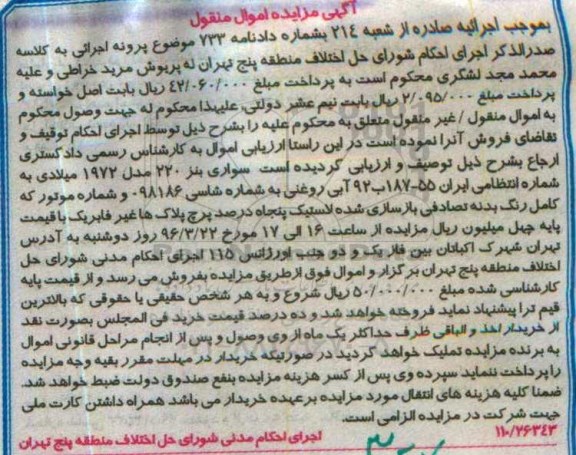 آگهی مزایده اموال منقول
بموجب اجرائیه صادره از شعبه ۲۱۴ بشماره دادنامه ۷۳۳ موضوع پرونه اجرائی به کلاسه
صدرالذکر اجرای احکام شورای حل اختلاف منطقه پنج تهران له پریوش مرید خراطی و علیه
محمد مجد لشگری محکوم است به پرداخت مبلغ ۴۲/۰۶۰/۰۰۰ ریال بابت اصل خواسته و
پرداخت مبلغ ۲/۰۹۵/۰۰۰ ریال بابت نیم عشر دولتی، علیهذا محکوم له جهت وصول محکوم
به اموال منقول / غیر منقول متعلق به محکوم علیه را بشرح ذیل توسط اجرای احکام توقیف و
تقاضای فروش آنرا نموده است در این راستا ارزیابی اموال به کارشناس رسمی دادگستری
ارجاع بشرح ذیل توصیف و ارزیابی گردیده است سواری بنز ۲۳۰ مدل ۱۹۷۲ میلادی به
شماره انتظامی ایران ۵۵-۱۸۷ب۹۲ آبی روغنی به شماره شاسی ۰۹۸۱۸۶ و شماره موتور که
کامل رنگ بدنه تصادفی بازسازی شده لاستیک پنجاه درصد پرچ پلاک ها غیر فابریک با قیمت
پایه چهل میلیون ریال مزایده از ساعت ۱۶ الی ۱۷ مورخ ۹۶/۳/۲۲ روز دوشنبه به آدرس
تهران شهرک اکباتان بین فاز یک و دو جنب اورژانس ۱۱۵ اجرای احکام مدنی شورای حل
اختلاف منطقه پنج تهران برگزار و اموال فوق ازطریق مزایده بفروش می رسد و از قیمت پایه
کارشناسی شده مبلغ ۵۰/۰۰۰/۰۰۰ ریال شروع و به هر شخص حقیقی یا حقوقی که بالاترین
قیم ترا پیشنهاد نماید فروخته خواهد شد و ده درصد قیمت خرید فی المجلس بصورت نقد
از خریدار اخذ و الباقی ظرف حداکثر یک ماه از وی وصول و پس از انجام مراحل قانونی اموال
به برنده مزایده تملیک خواهد گردید در صورتیکه خریدار در مهلت مقرر بقیه وجه مزایده
را پرداخت ننماید سپرده وی پس از کسر هزینه مزایده بنفع صندوق دولت ضبط خواهد شد.
ضمنا کلیه هزینه های انتقال مورد مزایده برعهده خریدار می باشد همراه داشتن کارت ملی
جهت شرکت در مزایده الزامی است.
۱۱۰/۲۶۳۴۳ اجرای احکام مدنی شورای حل اختلاف منطقه پنج تهران